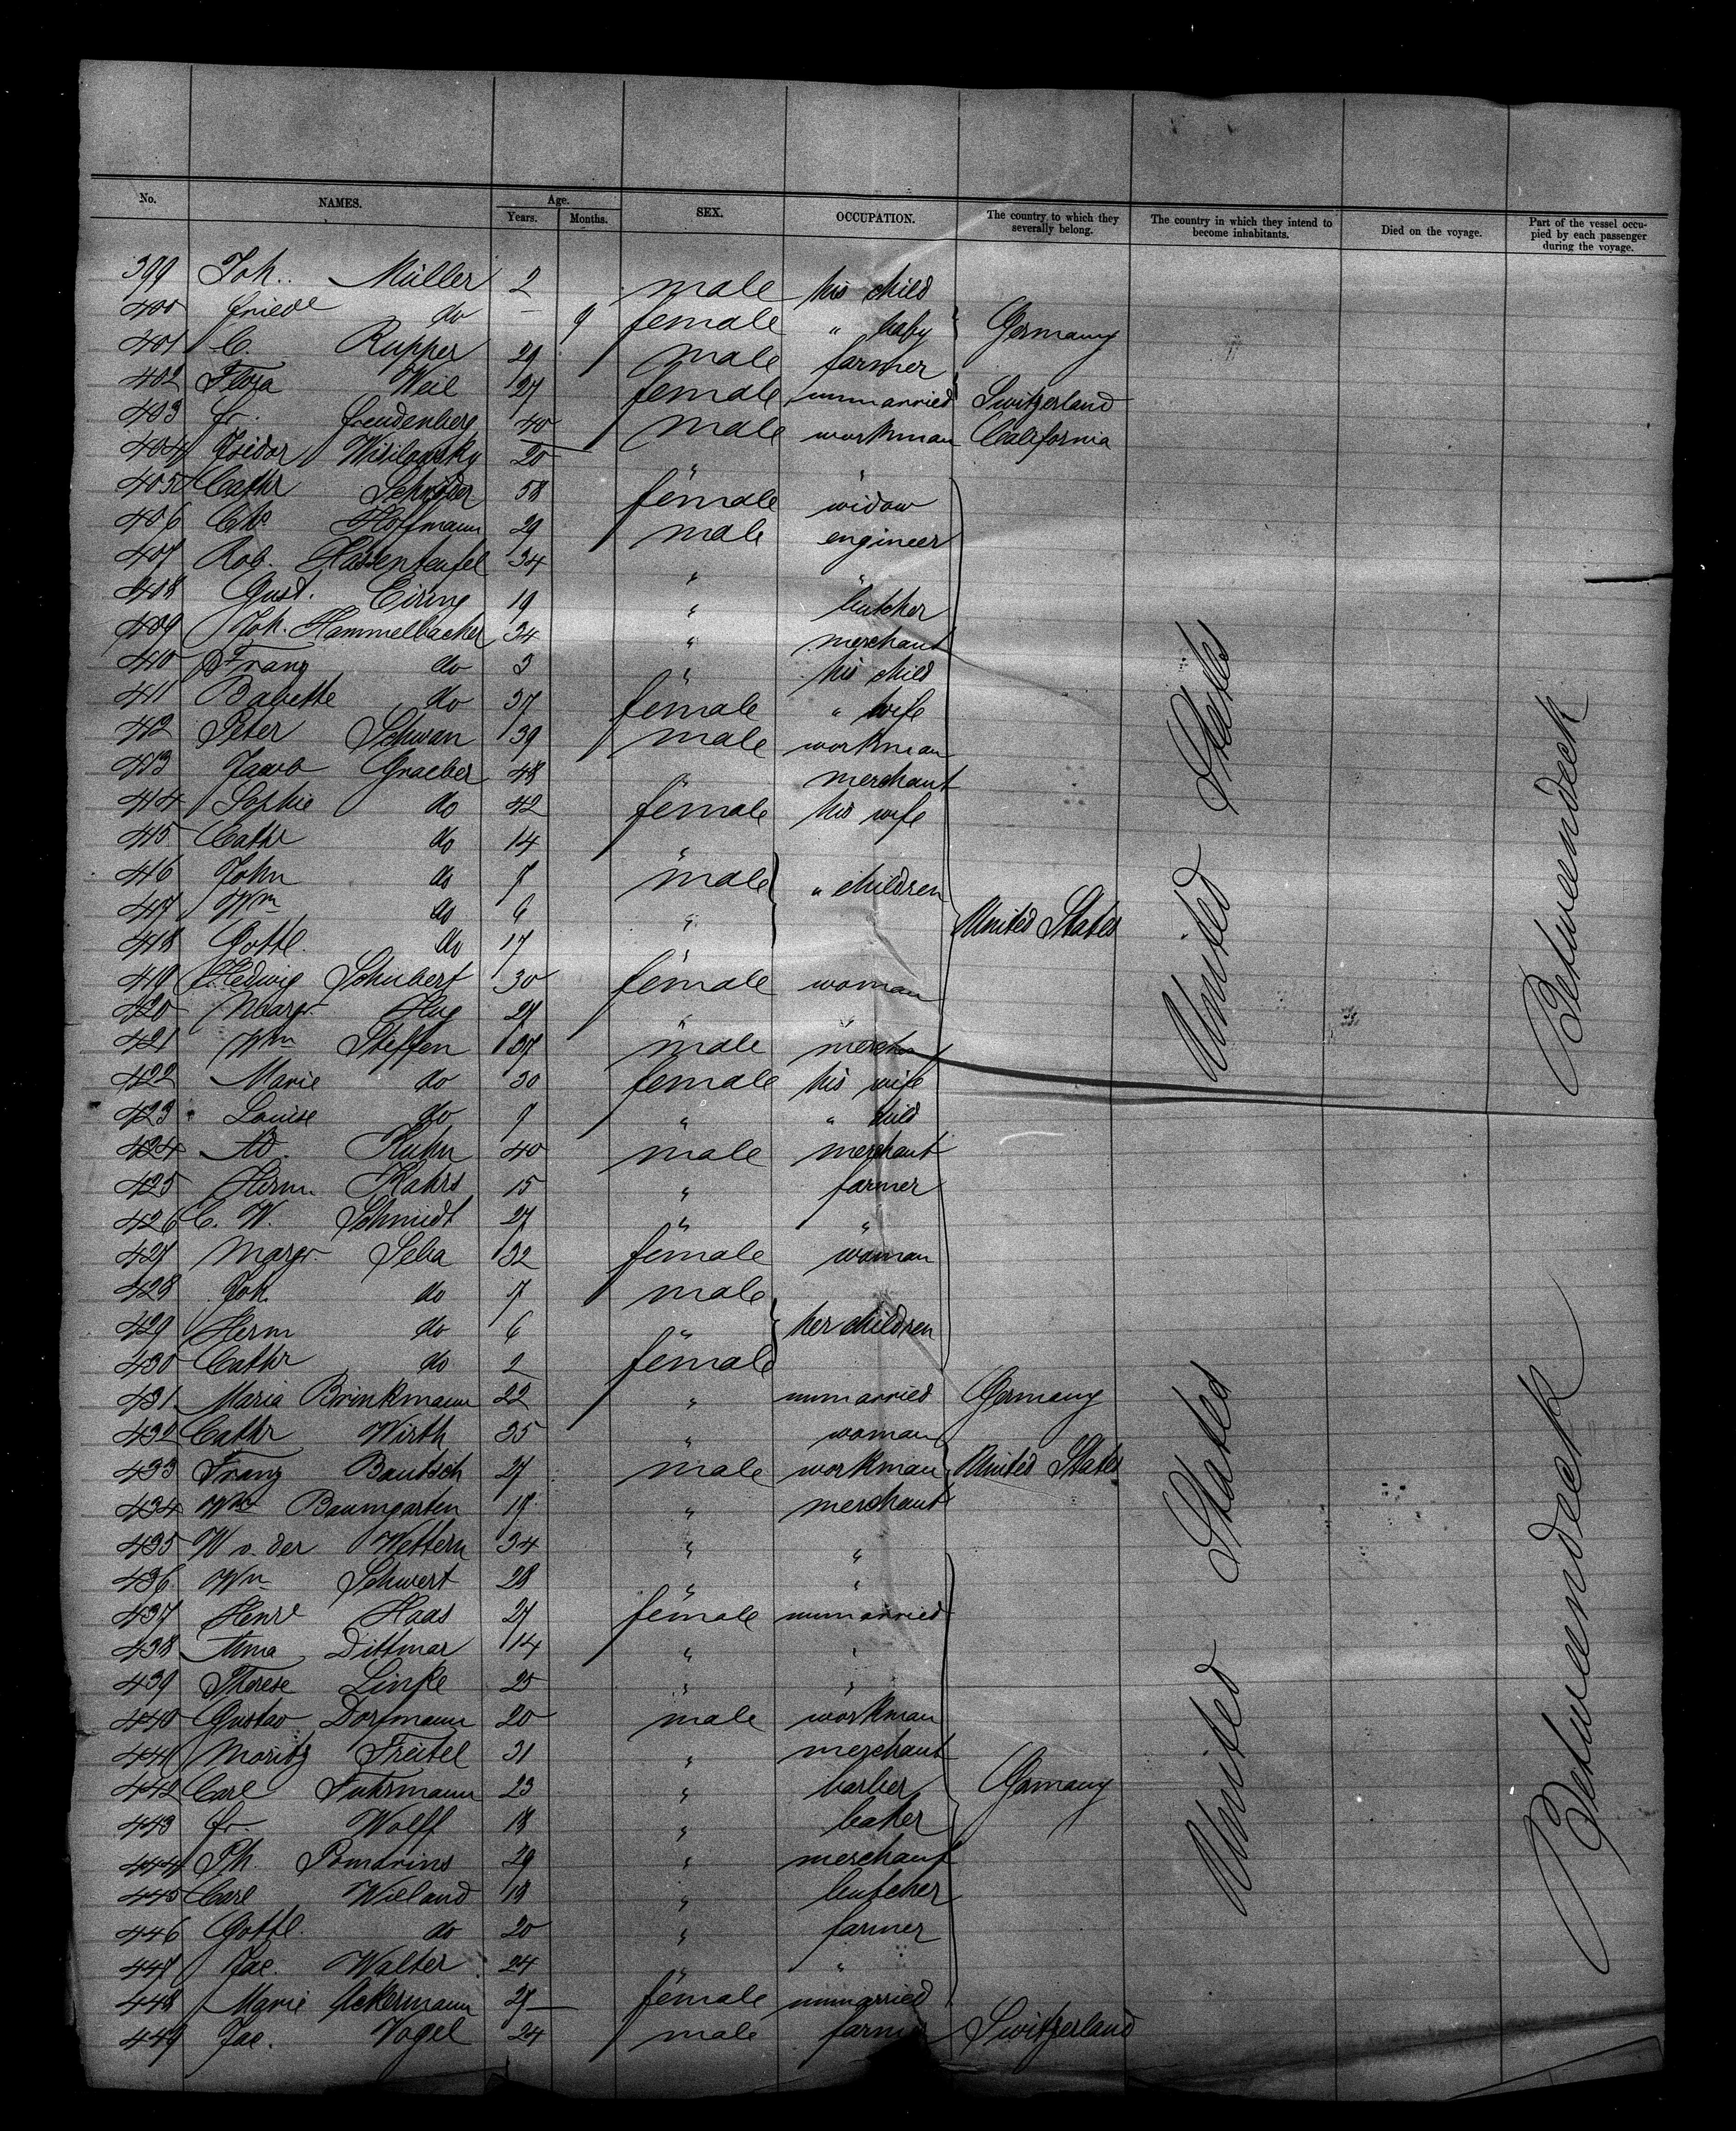 No. NAMES. Age. Years. Months. SEX. OCCUPATION. The country to which they severally belong. The country in which they intend to become inhabitants. Died on the voyage. Part of the vessel occupied by each passenger during the voyage.
399 Joh. Müller 2 male his child
400 Friedr do – 9 female " baby Germany
401 C. Rupper 29 male farmer
402 Flora Weil 27 female unmarried Switzerland
403 Fr. Freudenberg 40 male workman California
404 Isidor 20 " "
405 Cathr Schröder 58 female widow
406 Chr Hoffmann 29 male engineer
407 Rob. Hassenteufel 34 " "
408 Gust. Eiring 19 " butcher
409 Joh. Hammelbacher 34 " merchant
410 Franz do 3 " his child
411 Babette do 37 female " wife
412 Peter Schwan 39 male workman
413 Jacob Graeber 48 " merchant
414 Sophie do 42 female his wife
415 Cathr do 14 "
416 John do 7 male " children
417 Wm do 6 "
418 Gottl. do 17 " United States
419 Hedwig Schubert 30 female woman
420 Margr. Hug 27 " "
421 Wm Steffen 37 male merchant
422 Marie do 30 female his wife
423 Louise do 7 " " child
424 Ad. Kuhn 40 male merchant
425 Herm. Kahrs 15 " farmer
426 C. W. Schmidt 27 " "
427 Margr. Selia 32 female woman
428 Joh. do 7 male
429 Herm do 6 " her children
430 Cathr do 2 female
431 Maria Brinkmann 22 " unmarried Germany
432 Cathr Wirth 35 " woman
433 Franz Bautsch 27 male workman United States
434 Wm Baumgarten 17 " merchant
435 W v. der Wettern 34 " "
436 Wm Schwert 28 " "
437 Henre Haas 27 female unmarried
438 Anna Dittmar 14 " "
439 Therese Linke 25 " "
440 Gustav Dorfmann 20 male workman
441 Moritz Freitel 31 " merchant
442 Carl Fuhrmann 23 " barber Germany
443 Fr. Wolff 18 " baker
444 Ph. Pomarins 29 " merchant
445 Carl Wieland 18 " butcher
446 Gottl. do 20 " farmer
447 Jac. Walter 24 " "
448 Marie Ackermann 27 female unmarried
449 Jac. Vogel 24 male farmer Switzerland
United States
United States
Betweendeck
Betweendeck